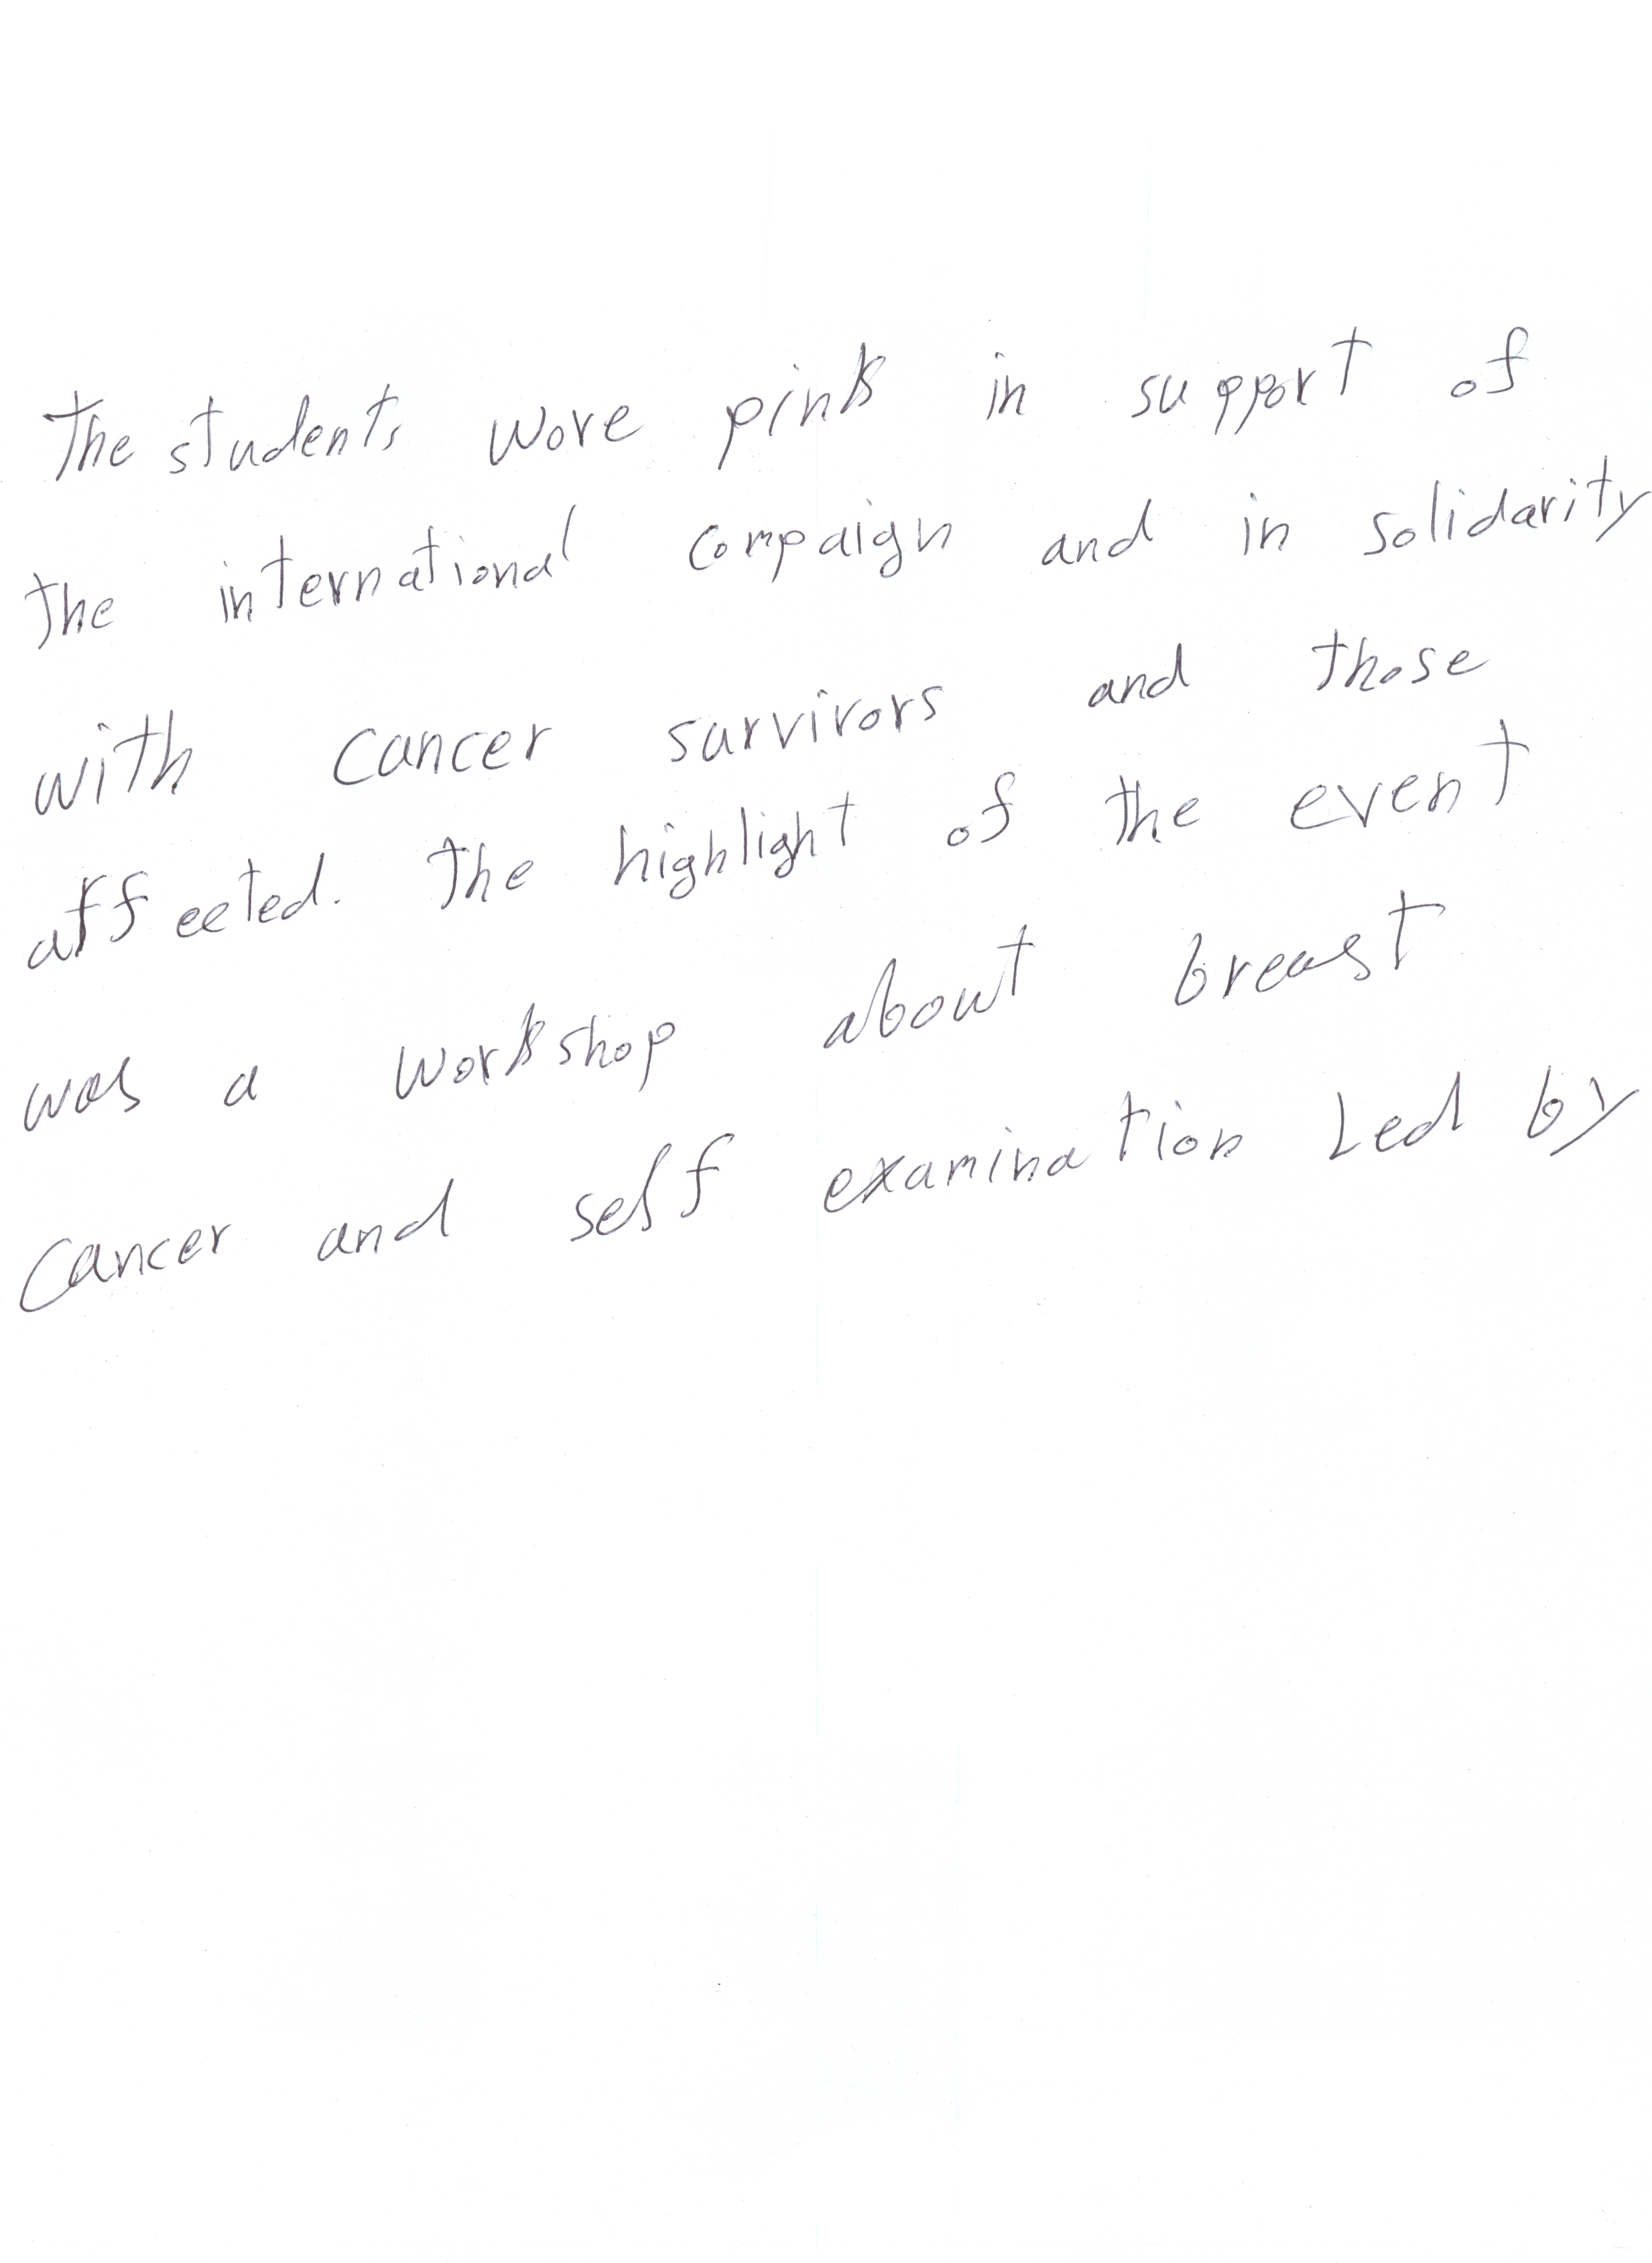 The students wore pink in support of
the international compaign and in solidarity
with cancer survivors and those
affected. The highlight of the event
was a workshop about breast
cancer and self examination Led by